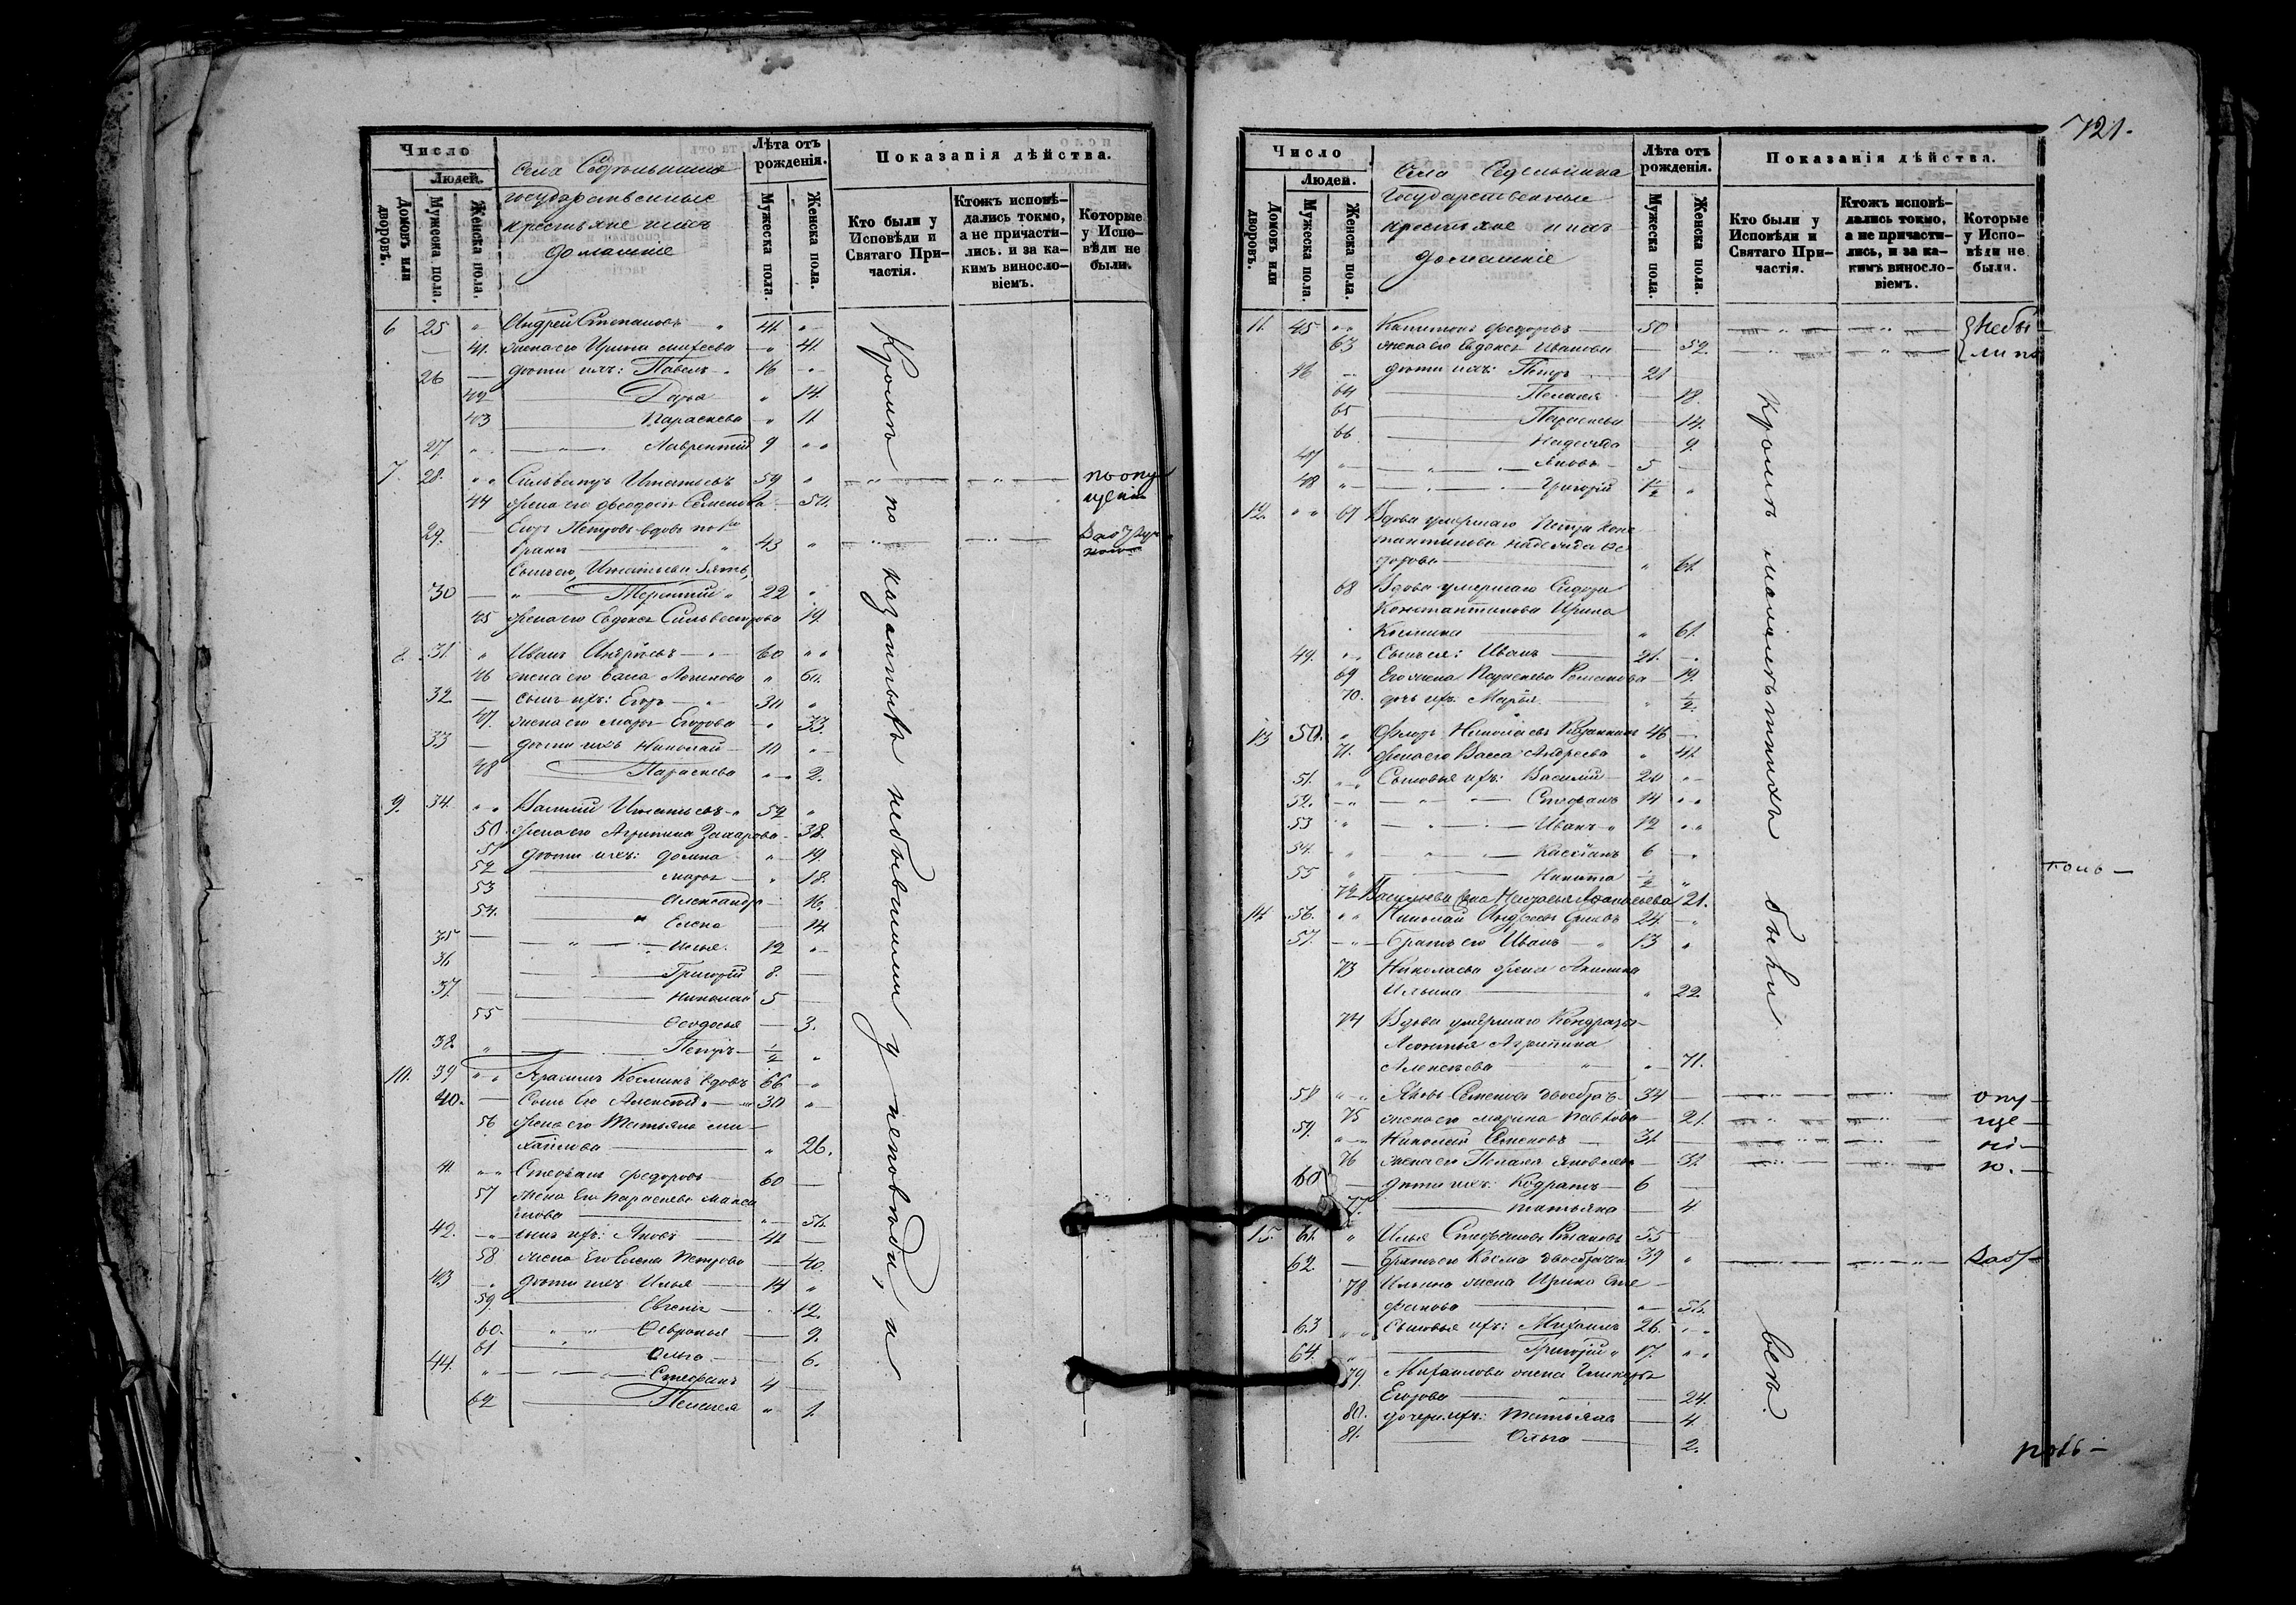 Число
Людей.
Домовъ или дворовъ.
Мужеска пола.
Женска пола.
Села Седелькина
государственные
крестьяне и ихъ
домашніе
Лѣта отъ рожденія.
Мужеска пола.
Женска пола.
Показанія дѣйства.
Кто были у Исповѣди и Святаго Причастія.
Ктожъ исповѣ-
дались токмо,
а не причасти-
лись. и за ка-
кимъ винословіемъ.
Которые у Испо-
вѣди не были.
6 25 Андрей Степановъ 41
41. жена его Ирина 41.
26 дѣти ихъ: Павелъ 16
42 Дарья 14.
43 Параскева 11
27 Лаврентій 9
7. 28. Сильвестръ Игнатьевъ 59 по опу
44 жена его Феодосія Семенова 50. щенію
29. Егоръ Петровъ вдовъ по
43
30 Терентій 22
45 жена его Евдокія Сильвестрова 19.
8. 31. Иванъ Андреевъ 60
46 жена его 60.
32 сынъ ихъ: Егоръ 30
47. жена его Марья Егорова 33.
33 дѣти ихъ Николай 10
48 Параскева 2.
9. 34. Василій Игнатьевъ 52
50. жена его Агрипина Захарова 38.
51 дѣти ихъ: Домна 19.
52 Марья 18.
53 Александра 16.
54. Елена 14
35 Илья 12
36 Григорій 8.
37 Николай 5
55 Феодосья 3.
38. Петръ 1/2
10. 39 Герасимъ Косминъ вдовъ 66
40. Сынъ его Алексѣй 30
56 жена его Татьяна Ми-
хайлова 26.
41. Стефанъ Федоровъ 60
57 жена его Параскева Макси
мова 56.
42. сынъ ихъ: Яковъ 41
58 жена его Елена Петрова 40.
43 дѣти ихъ Илья 14
59 Евгенія 12.
60. Февронья 9.
61 Ольга 6.
44. Стефанъ 4
62 Пелагея 1.
Кромѣ показанныхъ небывшими у исповѣди, и
721.
Число
Людей.
Домовъ или дворовъ.
Мужеска пола.
Женска пола.
Села Седелькина
государственные
крестьяне и ихъ
домашніе
Лѣта отъ рожденія.
Мужеска пола.
Женска пола.
Показанія дѣйства.
Кто были у Исповѣди и Святаго Причастія.
Ктожъ исповѣ-
дались токмо,
а не причасти-
лись, и за ка-
кимъ винословіемъ.
Которые у Испо-
вѣди не были.
11. 45 Капитонъ Федоровъ 50 небы
63 жена его Евдокія Иванова 52. ли по
46 дѣти ихъ: Петръ 21
64 Пелагея 18.
65 Параскева 14.
66 Надежда 9.
47 Яковъ 5
48 Григорій 1 1/2
12. 67 Вдова умершаго Петра Конс
тантинова Надежда Фе
дорова 61.
68 Вдова умершаго Сидора
Константинова Ирина
Косьмина 61.
49. Сынъ ея: Иванъ 21.
69 Его жена Параскева Романова 19.
70. дочь ихъ Марья 1/2.
13 50. Федоръ Николаевъ 46
71. жена его Васса Андреева 41.
51. Сыновья ихъ: Василій 20
52. Стефанъ 14
53 Иванъ 12
54. Касіянъ 6
55 Никита 1/2
72 Васильева жена Настасья Афанасьева 21.
14. 56. Николай Андреевъ 24
57. братъ его Иванъ 13
73 Николаева жена Акилина
Ильина 22.
74 Вдова умершаго Кондратія
Леонтья Агрипина
Алексѣева 71.
58 Яковъ Семеновъ двоебраченъ 34 опу
75 жена его Марина Павлова 21. ще
59. Николай Семеновъ 31 ні
76 жена его Пелагея Яковлева 32 ю.
60 дѣти ихъ: Кодратъ 6
77. Татьяна 4
15. 61. Илья Стефановъ Романовъ 55
62. братъ его Косма двоебраченъ 39
78 Ильина жена Ирина Сте
фанова 56.
63 Сыновья ихъ: Михаилъ 26.
64. Григорій 17.
79. Михаилова жена Гликерія
Егорова 24.
80. дочери ихъ: Татьяна 4.
81. Ольга 2.
Кромѣ малолѣтнихъ были всѣ.